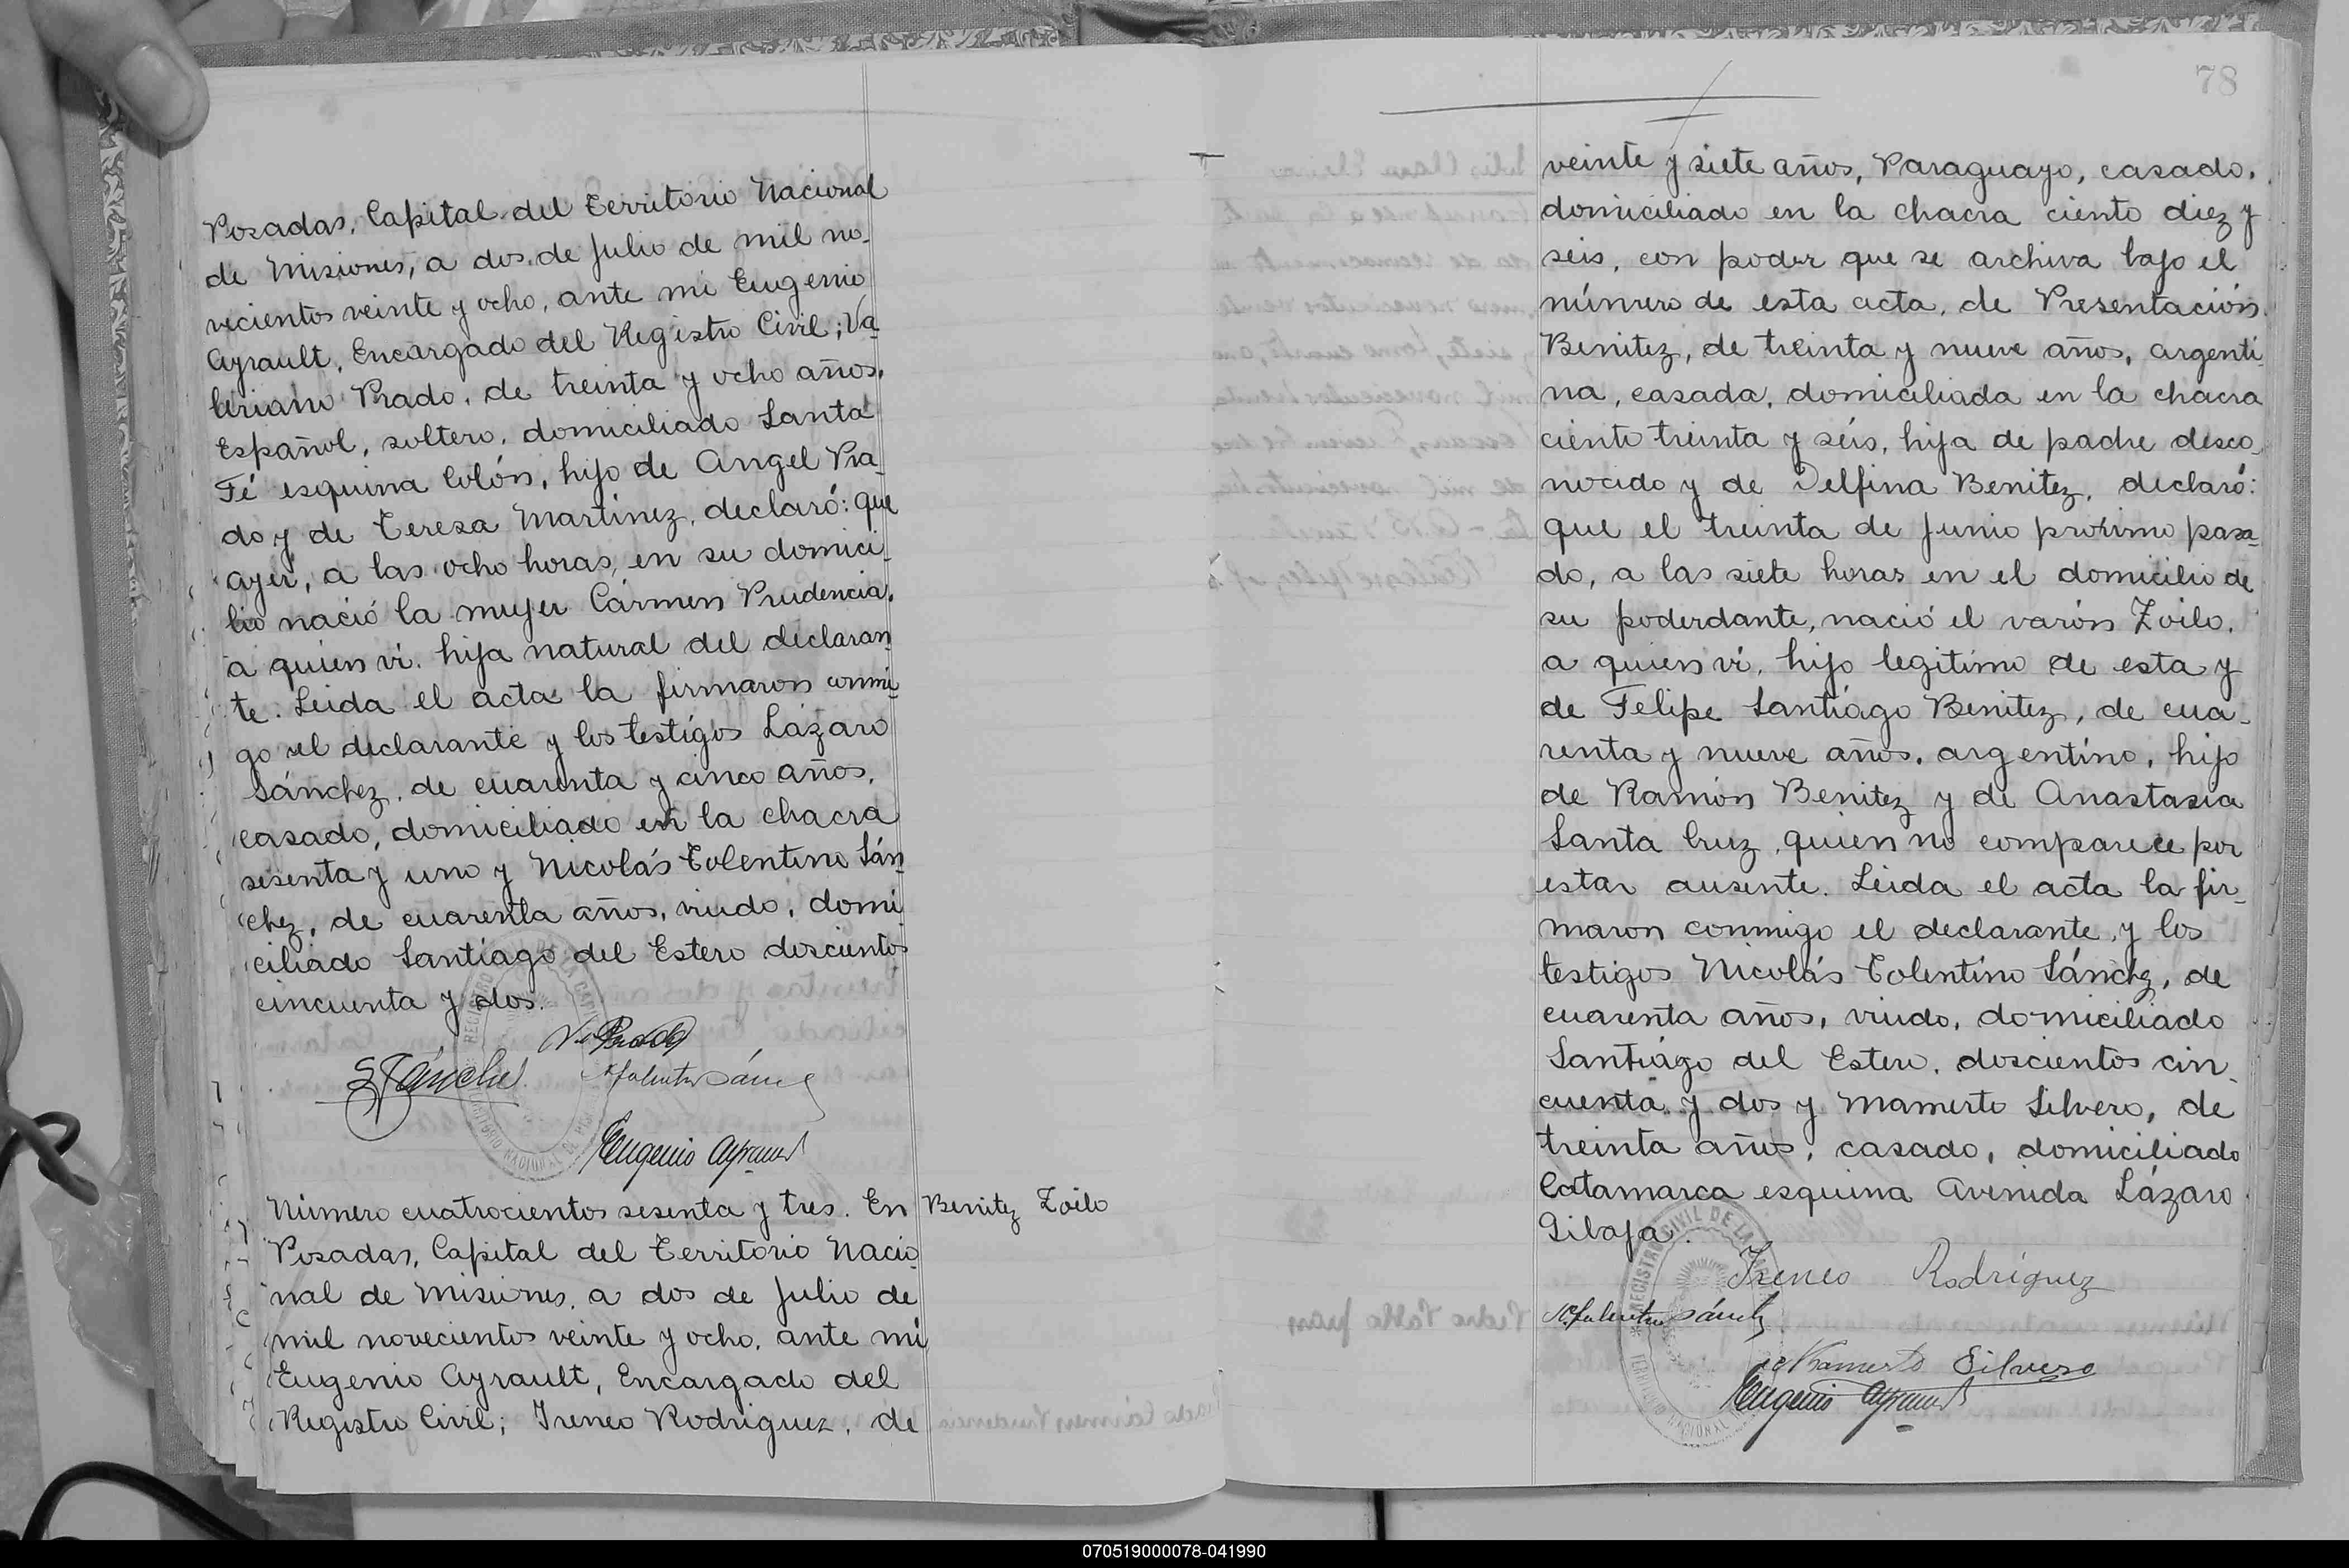 Posadas, Capital del Territorio Nacional
de Misiones, a dos de Julio de mil no-
vecientos veinte y ocho, ante mi Eugenio
Ayrault, Encargado del Registro Civil; Va-
leriano Prado, de treinta y ocho años,
Español, soltero, domiciliado Santa
Fé esquina Colón, hijo de Angel Pra-
do y de Teresa Martinez, declaró: que
ayer, a las ocho horas, en su domici-
lio nació la mujer Cármen Prudencia,
a quien vi, hija natural del declaran-
te. Leida el acta la firmaron conmi-
go el declarante y los testigos Lázaro
Sánchez, de cuarenta y cinco años,
casado, domiciliado en la chacra
sesenta y uno y Nicolás Tolentino Sán-
chez, de cuarenta años, viudo, domi-
ciliado Santiago del Estero doscientos
cincuenta y dos.
V. Prado
LSánchez
N. Tolentino Sánchez
Eugenio Ayrault
Número cuatrocientos sesenta y tres. En
Benitez Zoilo
Posadas, Capital del Territorio Nacio-
nal de Misiones, a dos de Julio de
mil novecientos veinte y ocho, ante mi
Eugenio Ayrault, Encargado del
Registro Civil; Ireneo Rodriguez, de
78
veinte y siete años, Paraguayo, casado,
domiciliado en la chacra ciento diez y
seis, con poder que se archiva bajo el
número de esta acta, de Presentación
Benitez, de treinta y nueve años, argenti-
na, casada, domiciliada en la chacra
ciento treinta y séis, hija de padre desco-
nocido y de Delfina Benitez, declaró:
que el treinta de Junio próximo pasa-
do, a las siete horas en el domicilio de
su poderdante, nació el varón Zoilo,
a quien vi, hijo legitimo de esta y
de Felipe Santiágo Benitez, de cua-
renta y nueve años, argentino, hijo
de Ramón Benitez y de Anastasia
Santa Cruz, quien no comparece por
estar ausente. Leida el acta la fir-
maron conmigo el declarante, y los
testigos Nicolás Tolentino Sánchez, de
cuarenta años, viudo, domiciliado
Santiágo del Estero, doscientos cin-
cuenta y dos y Mamerto Silvero, de
treinta años, casado, domiciliado
Catamarca esquina Avenida Lázaro
Gibaja.
Ireneo Rodríguez
N. Tolentino Sánchez
Mamerto Silvero
Eugenio Ayrault
070519000078-041990